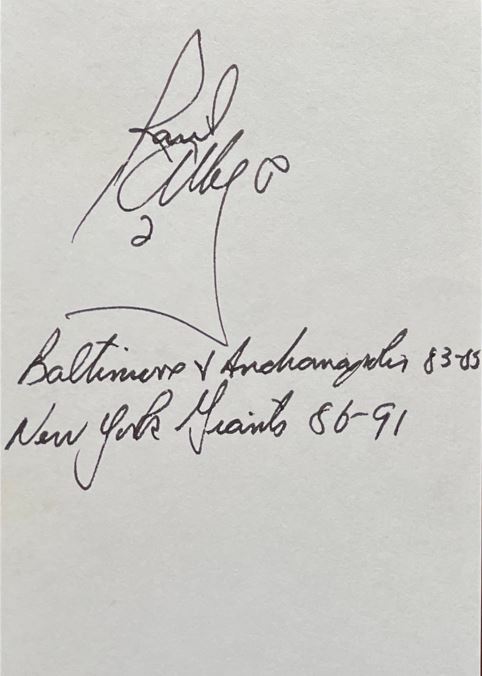 Raul
Allegre
2
Baltimore & Indianapolis 83-85
New York Giants 86-91